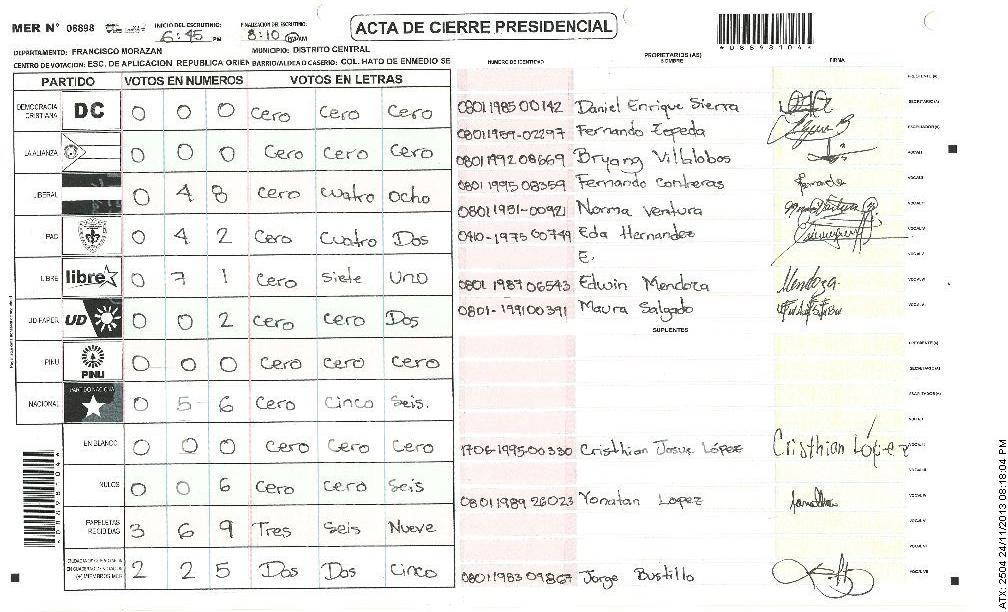 MER N° 06898
INICIO DEL ESCRUTINIO:
6:45 PM
FINALIZACION DEL ESCRUTINIO:
8:10
ACTA DE CIERRE PRESIDENCIAL
DEPARTAMENTO: FRANCISCO MORAZAN
MUNICIPIO: DISTRITO CENTRAL
CENTRO DE VOTACION: ESC. DE APLICACION REPUBLICA ORIEN
BARRIO/ALDEA O CASERIO: COL. HATO DE ENMEDIO SE
PARTIDO VOTOS EN NUMEROS VOTOS EN LETRAS
DEMOCRACIA CRISTIANA DC 0 0 0 Cero Cero Cero
LA ALIANZA 0 0 0 Cero Cero Cero
LIBERAL 0 4 8 Cero Cuatro Ocho
PAC 0 4 2 Cero Cuatro Dos
LIBRE libre 0 7 1 Cero Siete Uno
UD FAPER UD 0 0 2 Cero Cero Dos
PINU PINU 0 0 0 Cero Cero Cero
NACIONAL PARTIDO NACIONAL 0 5 6 Cero Cinco Seis.
EN BLANCO 0 0 0 Cero Cero Cero
NULOS 0 0 6 Cero Cero Seis
PAPELETAS RECIBIDAS 3 6 9 Tres Seis Nueve
(+) MIEMBROS MER 2 2 5 Dos Dos Cinco
NUMERO DE IDENTIDAD
PROPIETARIOS (AS)
NOMBRE
FIRMA
0801 1985 00142 Daniel Enrique Sierra
0801 1959-02297 Fernando Zepeda
0801 1992 08669 Bryang Villalobos
0801 1995 08359 Fernando Contreras
0801 1951-00921 Norma Ventura
0410-1975 00749 Eda Hernandez
E.
0801 1987 06543 Edwin Mendoza
Mendoza
0801-1991 00391 Maura Salgado
SUPLENTES
1706-1995-00330 Cristhian Josue López
Cristhian López
0801 1989 26023 Yonatan Lopez
0801 1983 09867 Jorge Bustillo
*06898104*
ATX: 2504 24/11/2013 08:18:04 PM